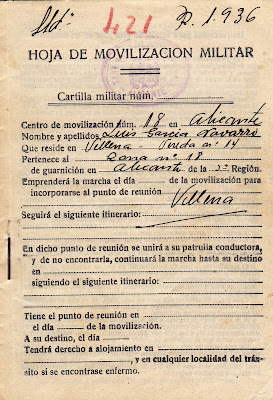 421 R. 1.936
HOJA DE MOVILIZACION MILITAR
Cartilla militar núm.
Centro de movilización núm. 18 en Alicante
Nombre y apellidos Luis García Navarro
Que reside en Villena - nº 14
Pertenece al Zona nº 18
de guarnición en Alicante de la 3ª Región.
Emprenderá la marcha el día de la movilización para
incorporarse al punto de reunión
Villena
Seguirá el siguiente itinerario:
En dicho punto de reunión se unirá a su patrulla conductora,
y de no encontrarla, continuará la marcha hasta su destino
en
siguiendo el siguiente itinerario:
Tiene el punto de reunión en
el día de la movilización.
A su destino, el día
Tendrá derecho a alojamiento en
, y en cualquier localidad del trán-
sito si se encontrase enfermo.